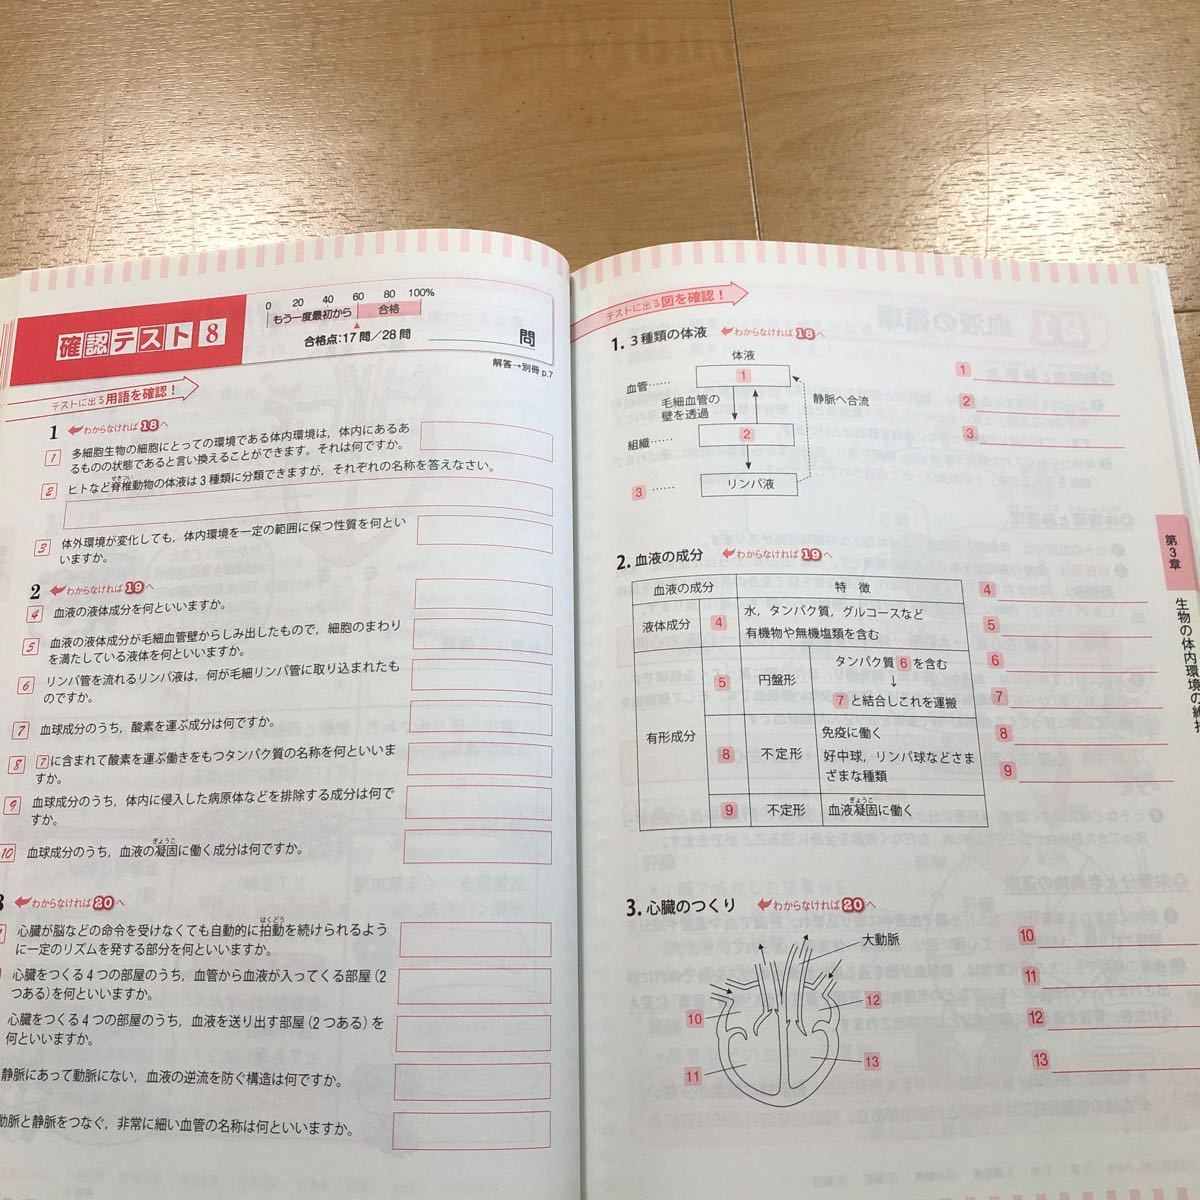 確認テスト 8
0 20 40 60 80 100%
もう一度最初から 合格
合格点：17問／28問 問
解答→別冊 p.7
テストに出る用語を確認！
1 わからなければ 18 へ
1 多細胞生物の細胞にとっての環境である体内環境は，体内にあるあ
るものの状態であると言い換えることができます。それは何ですか。
2 ヒトなど脊椎動物の体液は3種類に分類できますが，それぞれの名称を答えなさい。
せきつい
3 体外環境が変化しても，体内環境を一定の範囲に保つ性質を何とい
いますか。
2 わからなければ 19 へ
4 血液の液体成分を何といいますか。
5 血液の液体成分が毛細血管壁からしみ出したもので，細胞のまわり
を満たしている液体を何といいますか。
6 リンパ管を流れるリンパ液は，何が毛細リンパ管に取り込まれたも
のですか。
7 血球成分のうち，酸素を運ぶ成分は何ですか。
8 7に含まれて酸素を運ぶ働きをもつタンパク質の名称を何といいま
すか。
9 血球成分のうち，体内に侵入した病原体などを排除する成分は何で
すか。
10 血球成分のうち，血液の凝固に働く成分は何ですか。
ぎょうこ
わからなければ 20 へ
心臓が脳などの命令を受けなくても自動的に拍動を続けられるよう
はくどう
に一定のリズムを発する部分を何といいますか。
心臓をつくる4つの部屋のうち，血管から血液が入ってくる部屋（2
つある）を何といいますか。
心臓をつくる4つの部屋のうち，血液を送り出す部屋（2つある）を
何といいますか。
静脈にあって動脈にない，血液の逆流を防ぐ構造は何ですか。
動脈と静脈をつなぐ，非常に細い血管の名称は何といいますか。
テストに出る図を確認！
1. 3種類の体液 わからなければ 18 へ
体液
血管…… 1
毛細血管の
壁を透過
静脈へ合流
組織…… 2
3 …… リンパ液
1
2
3
2. 血液の成分 わからなければ 19 へ
血液の成分 特徴
液体成分 4 水，タンパク質，グルコースなど
有機物や無機塩類を含む
有形成分 5 円盤形 タンパク質 6 を含む
↓
7 と結合しこれを運搬
8 不定形 免疫に働く
好中球，リンパ球などさま
ざまな種類
9 不定形 血液凝固に働く
ぎょうこ
4
5
6
7
8
9
3. 心臓のつくり わからなければ 20 へ
大動脈
10
11
12
13
10
11
12
13
第3章
生物の体内環境の維持